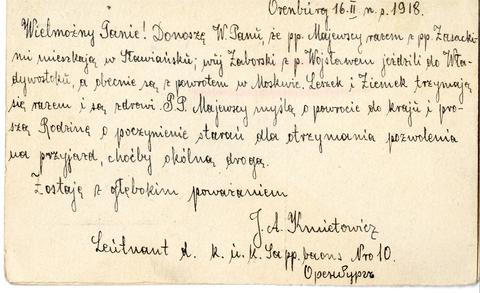 Orenburg 16.II n.p. 1918.
Wielmożny Panie! Donoszę W. Panu, że pp. Majewscy razem z pp. Zasacki-
mi mieszkają w Sławiańsku; wuj Zaborski z p. Wojsławem jeździli do Wła-
dywostoku, a obecnie są z powrotem w Moskwie. Leszek i Ziemek trzymają
się razem i są zdrowi. P.P. Majewscy myślą o powrocie do kraju i pro-
szą Rodzinę o poczynienie starań dla otrzymania pozwolenia
na przyjazd, choćby okólną drogą.
Zostaję z głębokim poważaniem
J. A. Kmietowicz
Leutnant d. k. u. k. Sapp. baons Nro 10.
Оренбургъ